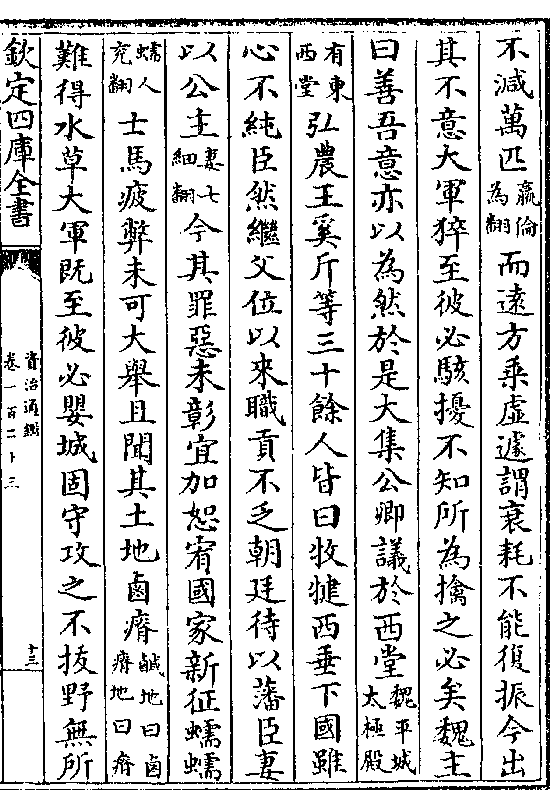 不減萬匹羸倫為翻而遠方乗虚遽謂衰耗不能復振今出
其不意大軍猝至彼必駭擾不知所為擒之必矣魏主
曰善吾意亦以為然於是大集公卿議於西堂魏平城太極殿
有東西堂弘農王奚斤等三十餘人皆曰牧犍西垂下國雖
心不純臣然繼父位以來職貢不乏朝廷待以藩臣妻
以公主妻七細翻今其罪惡未彰宜加恕宥國家新征蠕蠕
蠕人兖翻士馬疲弊未可大舉且聞其土地鹵瘠鹹地曰鹵瘠地曰瘠
難得水草大軍既至彼必嬰城固守攻之不拔野無所
欽定四庫全書
資治通鑑
卷一百二十三
十三